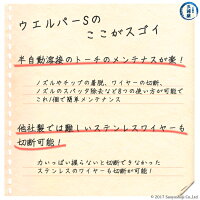 ウエルパーSの
ここがスゴイ
半自動溶接のトーチのメンテナスが楽！
ノズルやチップの着脱、ワイヤーの切断、
ノズルのスパッタ除去など8つの使い方が可能で
これ1個で簡単メンテナンス
他社製では難しいステンレスワイヤーも
切断可能！
力いっぱい握らないと切断できなかった
ステンレスのワイヤーも切断が可能！